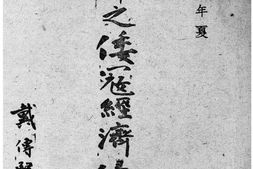 年夏
之倭寇經濟
戴傳